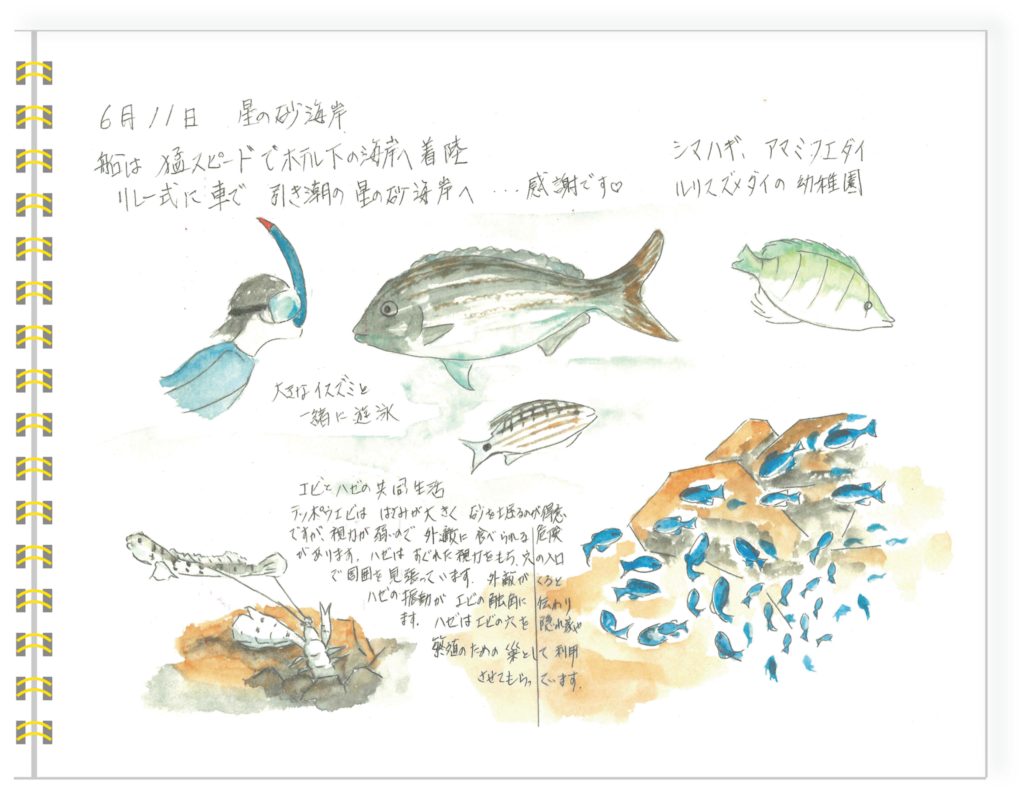 6月11日 星の砂海岸
船は 猛スピードでホテル下の海岸へ着陸
リレー式に車で 引き潮の星の砂海岸へ … 感謝です♡
シマハギ、アマミフエダイ
ルリスズメダイの幼稚園
大きなイスズミと
一緒に遊泳
エビとハゼの共同生活
テッポウエビは はさみが大きく 砂を掘るのが得意
ですが、視力が弱いので 外敵に食べられる危険
があります。ハゼは すぐれた視力をもち、穴の入口
で周囲を見張っています。外敵がくると
ハゼの振動が エビの触角に伝わり
ます。ハゼはエビの穴を隠れ家や
繁殖のための巣として利用
させてもらっています。